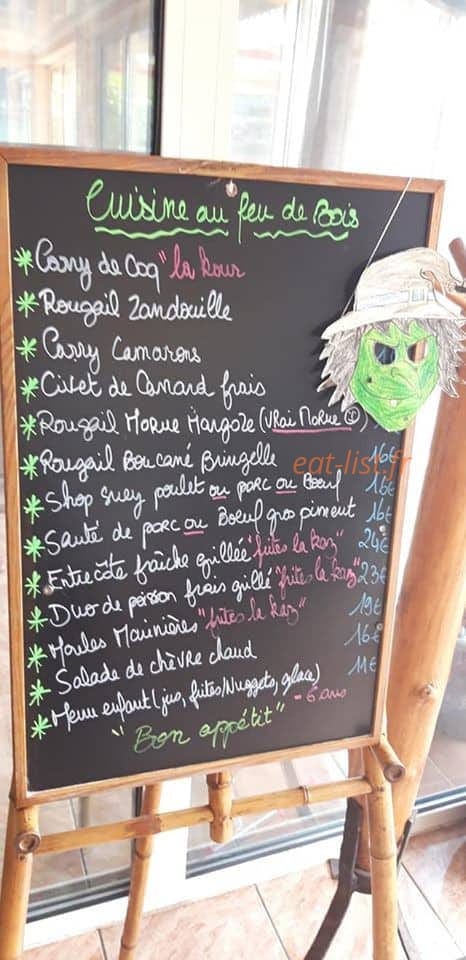 Cuisine au feu de Bois
* Carry de Coq "la kour
* Rougail Zandouille
* Carry Camarons
* Civet de Canard frais
* Rougail Morue Mangoze (vrai Morue)
* Rougail Boucané Bringelle 16€
* Shop suey poulet ou porc ou Boeuf 16€
* Sauté de porc ou Boeuf gros piment 16€
* Entrecôte fraîche grillée "frites la kaz" 24€
* Duo de poisson frais grillé "frites la kaz" 23€
* Moules Marinières "frites la kaz" 19€
* Salade de chèvre chaud 16€
* Menu enfant (jus, frites/Nuggets, glace) - 6 ans 11€
"Bon appétit"
eat-list.fr